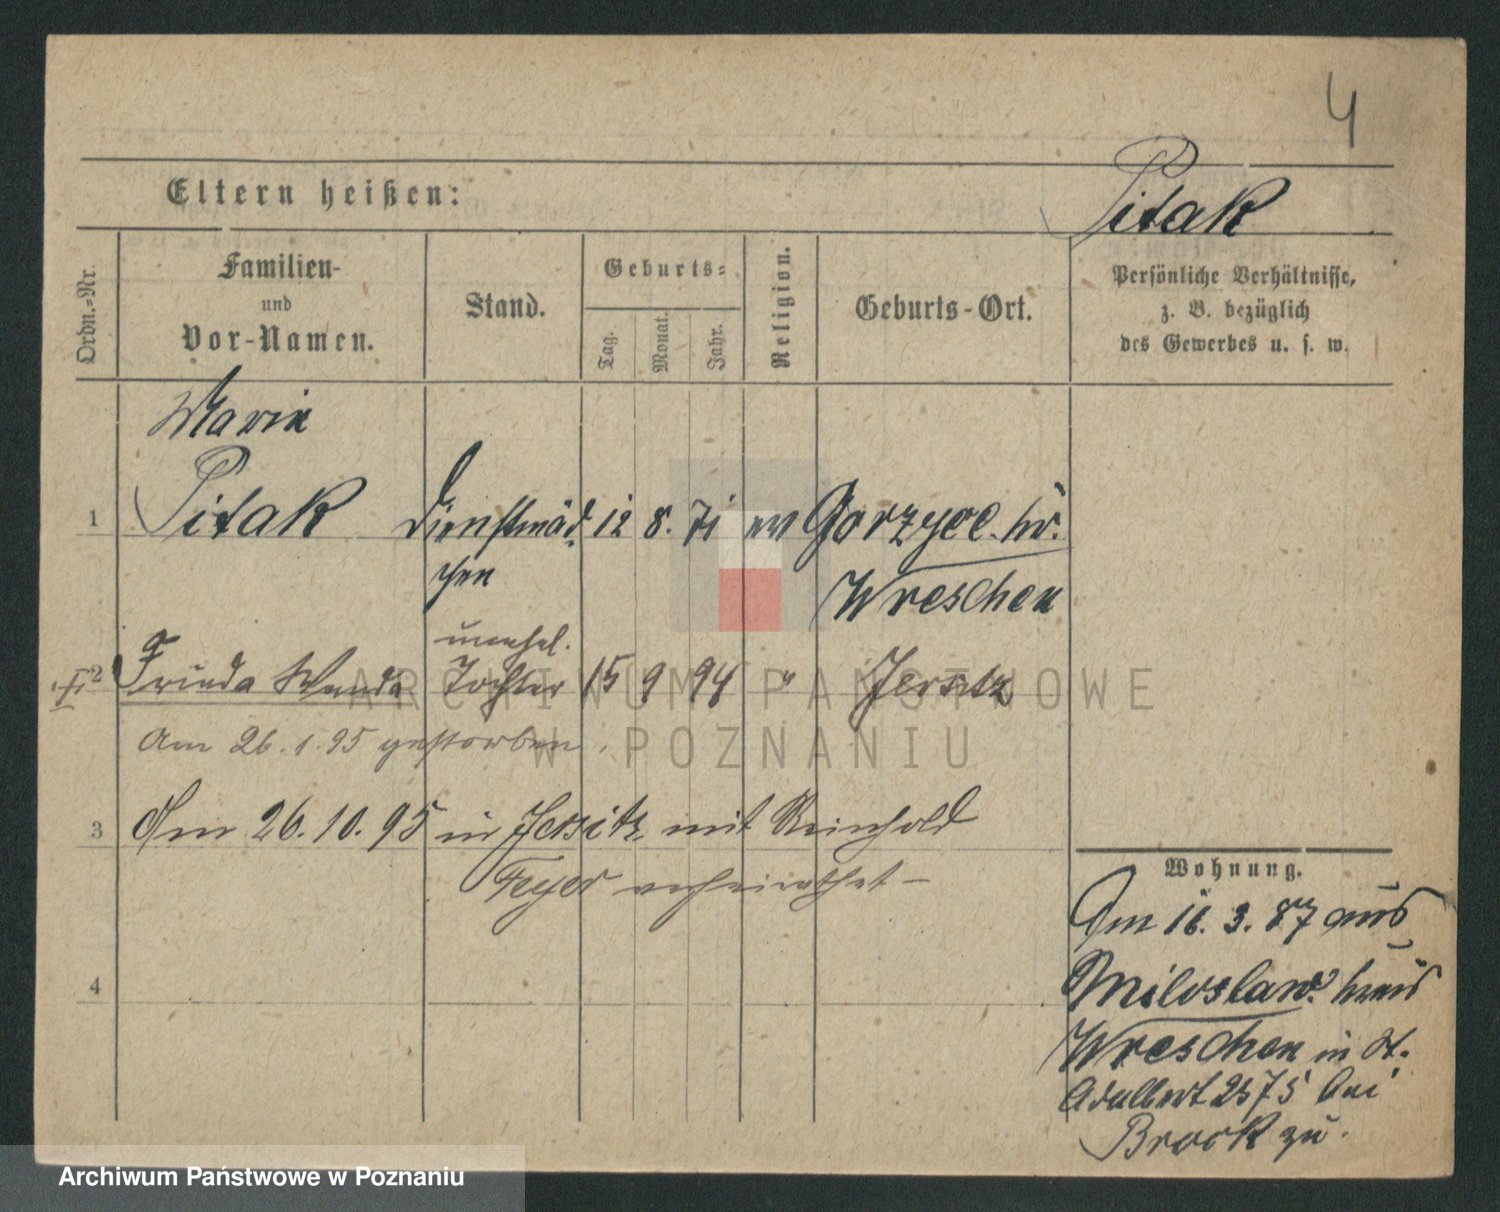 4
Eltern heißen:
Pitak
Ordn.-Nr.
Familien-
und
Vor-Namen.
Stand.
Geburts-
Tag.
Monat.
Jahr.
Religion.
Geburts-Ort.
Persönliche Verhältnisse,
z. B. bezüglich
des Gewerbes u. s. w.
Marie
1 Pitak Dienstmäd- 12 8. 71 ev Gorzyce. Kr.
chen Wreschen
unehel.
2 Frieda Wanda Tochter 15 9 94 " Jersitz
Am 26.1.95 gestorben.
3 Am 26.10.95 in Jersitz mit Reinhold
Feyer verheirathet –
4
Wohnung.
Am 16. 3. 87 aus
Miloslaw Kreis
Wreschen in St.
Adalbert 2575 bei
Brock zu.
ARCHIWUM PAŃSTWOWE
W POZNANIU
Archiwum Państwowe w Poznaniu